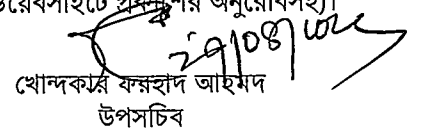 ওয়েবসাইটে প্রকাশের অনুরোধসহ)।
খোন্দকার ফরহাদ আহমদ
উপসচিব